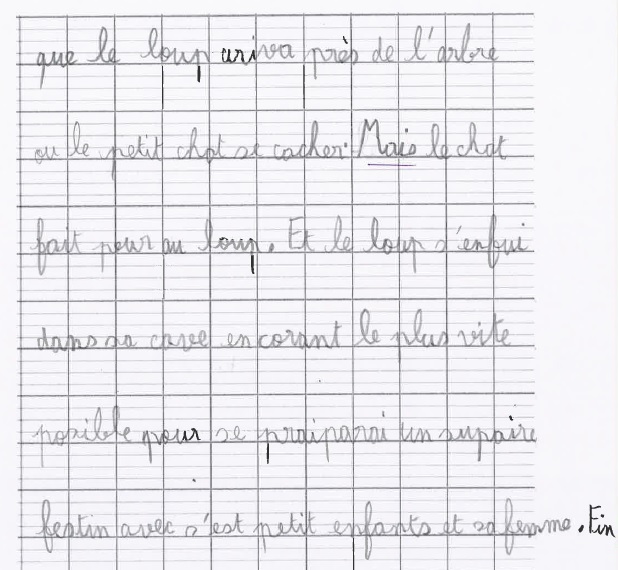 que le loup ariva près de l'arbre
ou le petit chat se cacher. Mais le chat
fait peur au loup. Et le loup s'enfui
dans sa cave en corant le plus vite
posible pour se praiparai un supaire
festin avec s'est petit enfants et sa femme. Fin